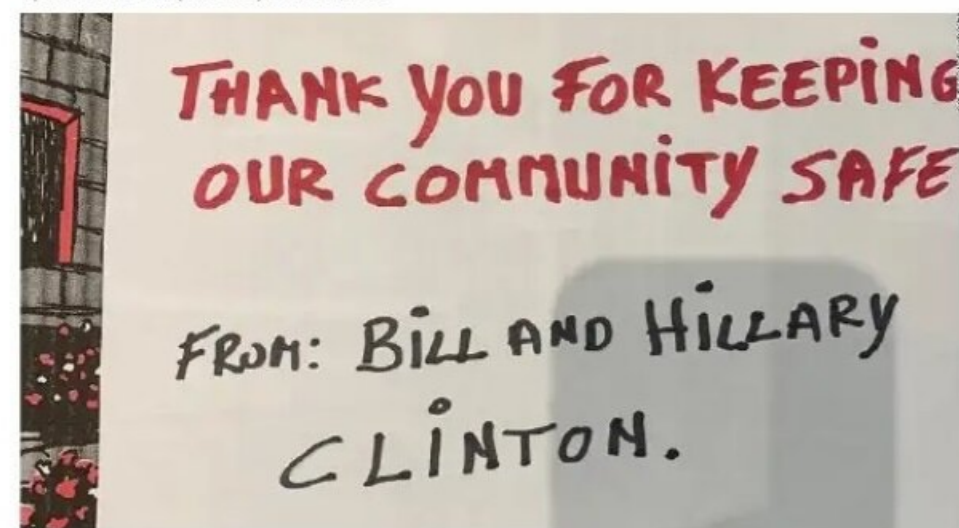 THANK YOU FOR KEEPING
OUR COMMUNITY SAFE
FROM: BILL AND HILLARY
CLINTON.